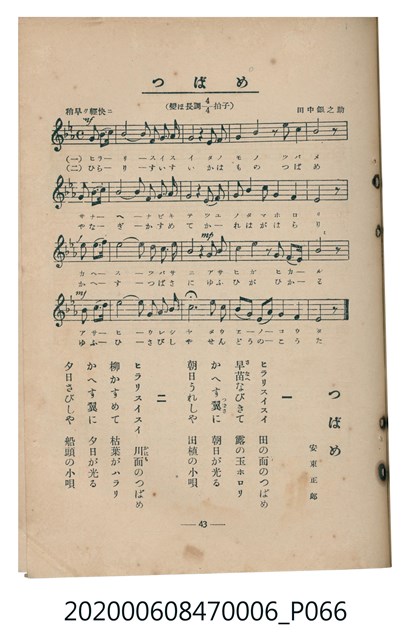 つばめ
(變ほ長調 4/4 拍子)
稍早ク輕快ニ
田中銀之助
mf
(一)ヒラリ―リ―スイスイ タノモノ ツバメ
(二)ひらり―り―すいすい かはもの つばめ
サナ―ヘ―ナビキテ ツユノタマホロリ
やな―ぎ―かすめて かれはがはらり
mp
カヘ―ス―ツバサニ アサヒガ ヒカ―ル
かへ―す―つばさに ゆふひが ひか―る
mf
アサ―ヒ―ウレシヤ タウエ―ノ―コウタ
ゆふ―ひ―さびしや せんどうの―こうた
つばめ
安東正郎
一
ヒラリスイスイ 田の面のつばめ
早苗なびきて 露の玉ホロリ
かへす翼に 朝日が光る
朝日うれしや 田植の小唄
二
ヒラリスイスイ 川面のつばめ
柳かすめて 枯葉がハラリ
かへす翼に 夕日が光る
夕日さびしや 船頭の小唄
―43―
202000608470006_P066